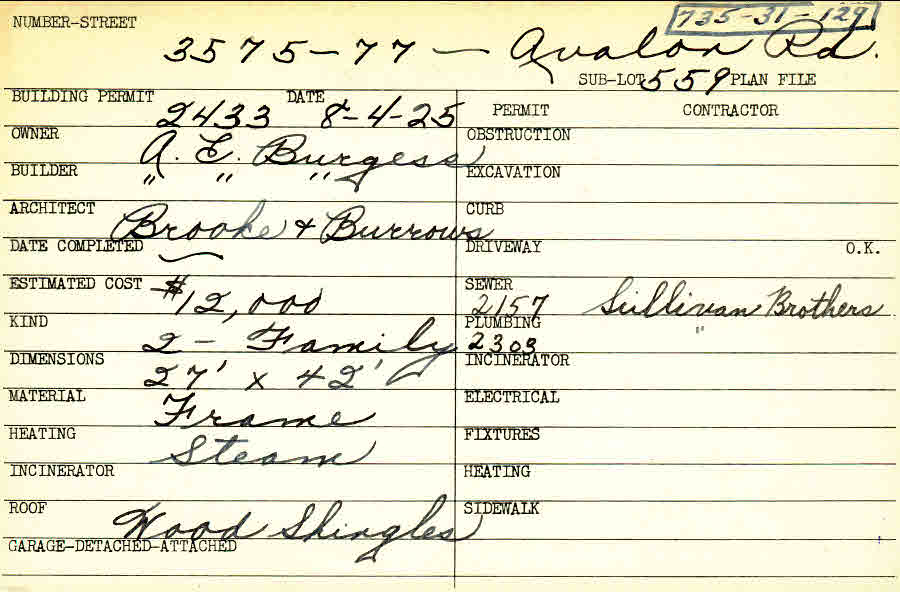 735-31-129
NUMBER-STREET 3575-77 — Avalon Rd.
SUB-LOT 559 PLAN FILE
BUILDING PERMIT 2433 DATE 8-4-25
PERMIT CONTRACTOR
OWNER A. E. Burgess
OBSTRUCTION
BUILDER " " "
EXCAVATION
ARCHITECT Brooke & Burrows
CURB
DATE COMPLETED —
DRIVEWAY O.K.
ESTIMATED COST $12,000
SEWER 2157 Sullivan Brothers
KIND 2 - Family
PLUMBING 2303 "
DIMENSIONS 27' x 42'
INCINERATOR
MATERIAL Frame
ELECTRICAL
HEATING Steam
FIXTURES
INCINERATOR
HEATING
ROOF Wood Shingles
SIDEWALK
GARAGE-DETACHED-ATTACHED